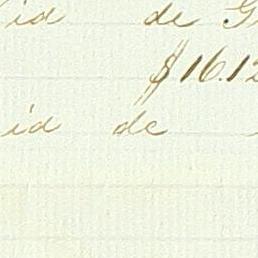 id de G
$16.12
id de